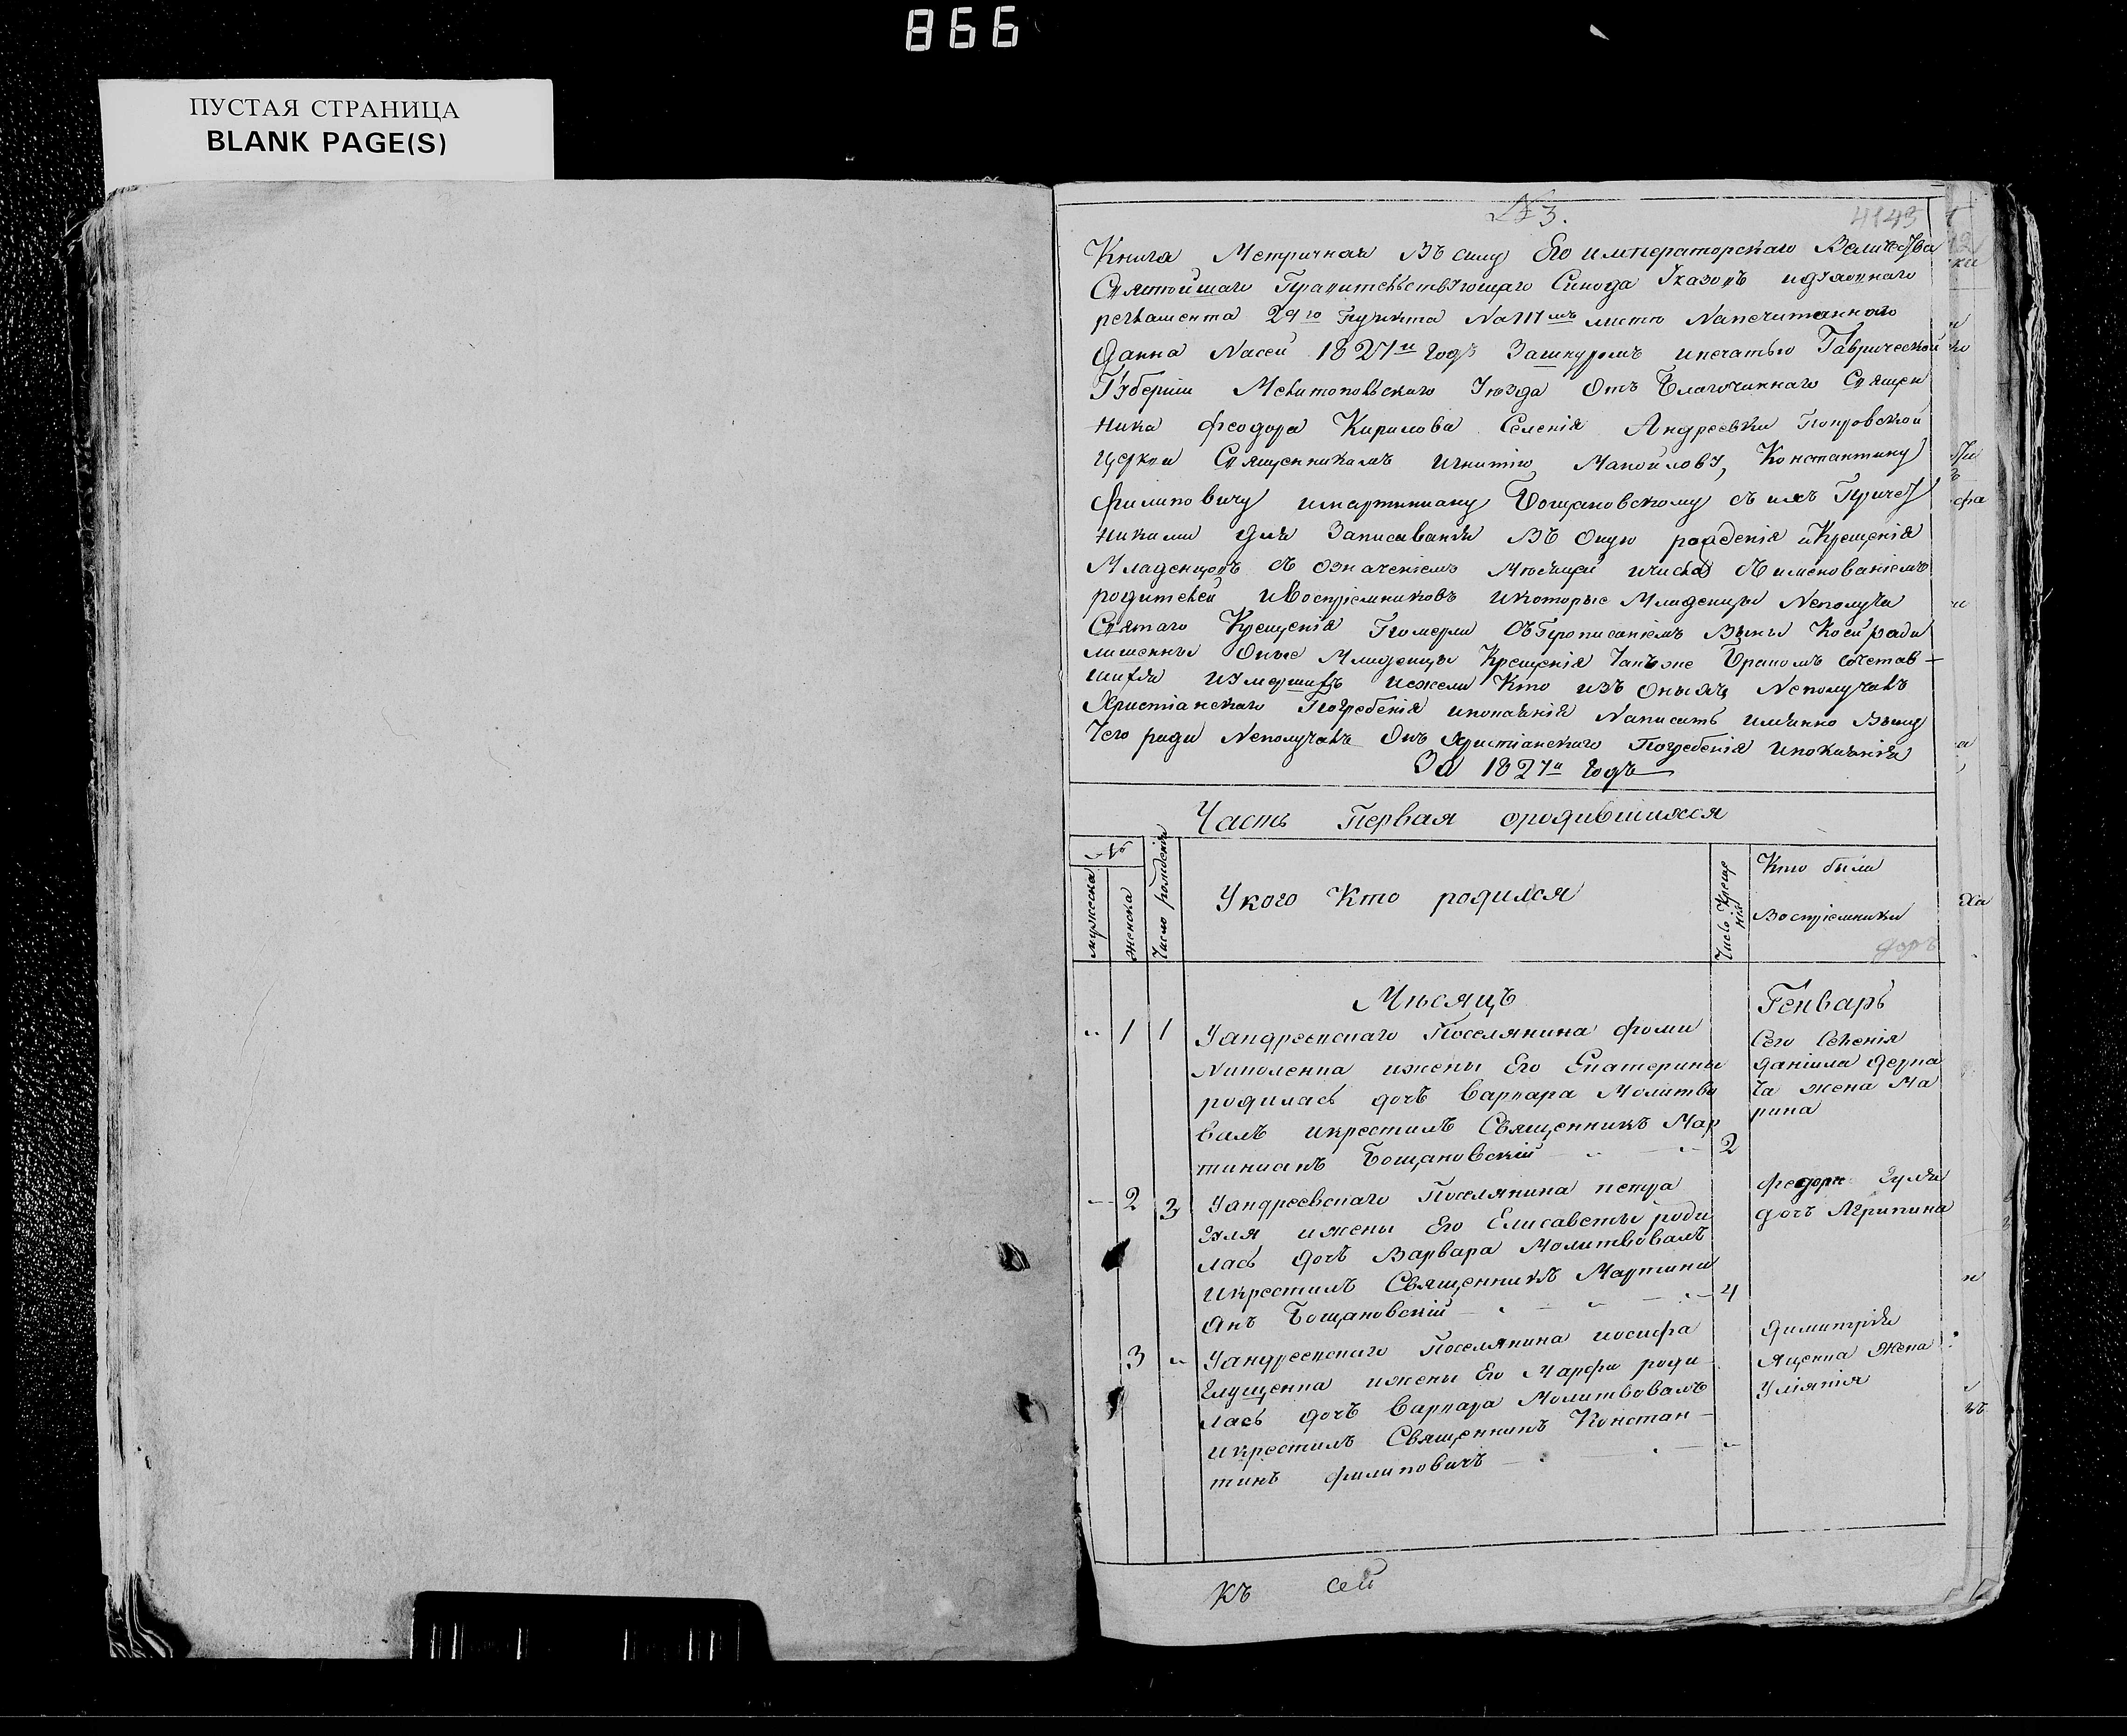 866
ПУСТАЯ СТРАНИЦА
BLANK PAGE(S)
№ 3.
4143
Книга Метричная Въ силу Его императорскаго Величества
Святѣйшаго Правительствующаго Синода Указовъ идуховнаго
регламента 29го Пункта На листѣ Напечатанного
Данна Насей 1827й Годъ Зашнуромъ ипечатью Таврической
Губерніи Мелитопольскаго Уѣзда Отъ Благочиннаго Священ
ника Феодора Кирилова Селенія Андреевки Покровской
Церкви Священникамъ Игнатію Манойлову, Константину
Филиповичу имартиниану Бощановскому съ ихъ Причет
никами для Записыванія Въ оную рожденія иКрещенія
Младенцовъ съ означеніемъ Мѣсяца ичисла съ именованіемъ
родителей иВоспріемниковъ икоторые Младенцы Неполуча
Святаго Крещенія Померли съ Прописаніемъ Вины Коей ради
лишенны Оные Младенцы Крещенія Такъже Бракомъ сочетав-
шихся иУмершихъ иежели Кто изъ Оныхъ Неполучалъ
Христіанскаго Погребенія ипокаянія Написать имянно Вину
Чего ради Неполучалъ Онъ Христіанскаго Погребенія ипокаянія
За 1827й Годъ
Часть Первая ородившихся
№
мужеска
женска
Число рожденія
Укого Кто родился
Число Креще
нія
Кто были
Воспріемники
Мѣсяцъ Генварь
1 1 Уандреевскаго Поселянина Фомы
Наполенка ижены Его Екатерины
родилась дочь Варвара Молитво
валъ икрестилъ Священникъ Мар
тинианъ Бощановскій 2
Сего Селенія
Даніила Дерка
ча жена Ма
рина
2 3 Уандреевскаго Поселянина петра
Зуля ижены Его Елисаветы роди
лась дочь Варвара Молитвовалъ
икрестилъ Священникъ Мартини
анъ Бощановскій 4
Федора Зуля
дочь Агрипина
3 Уандреевскаго Поселянина иосифа
Глущенка ижены Его Марфы роди
лась дочь Варвара Молитвовалъ
икрестилъ Священникъ Констан-
тинъ Филиповичъ
Димитрія
Яценка Жена
Уліянія
Къ сей